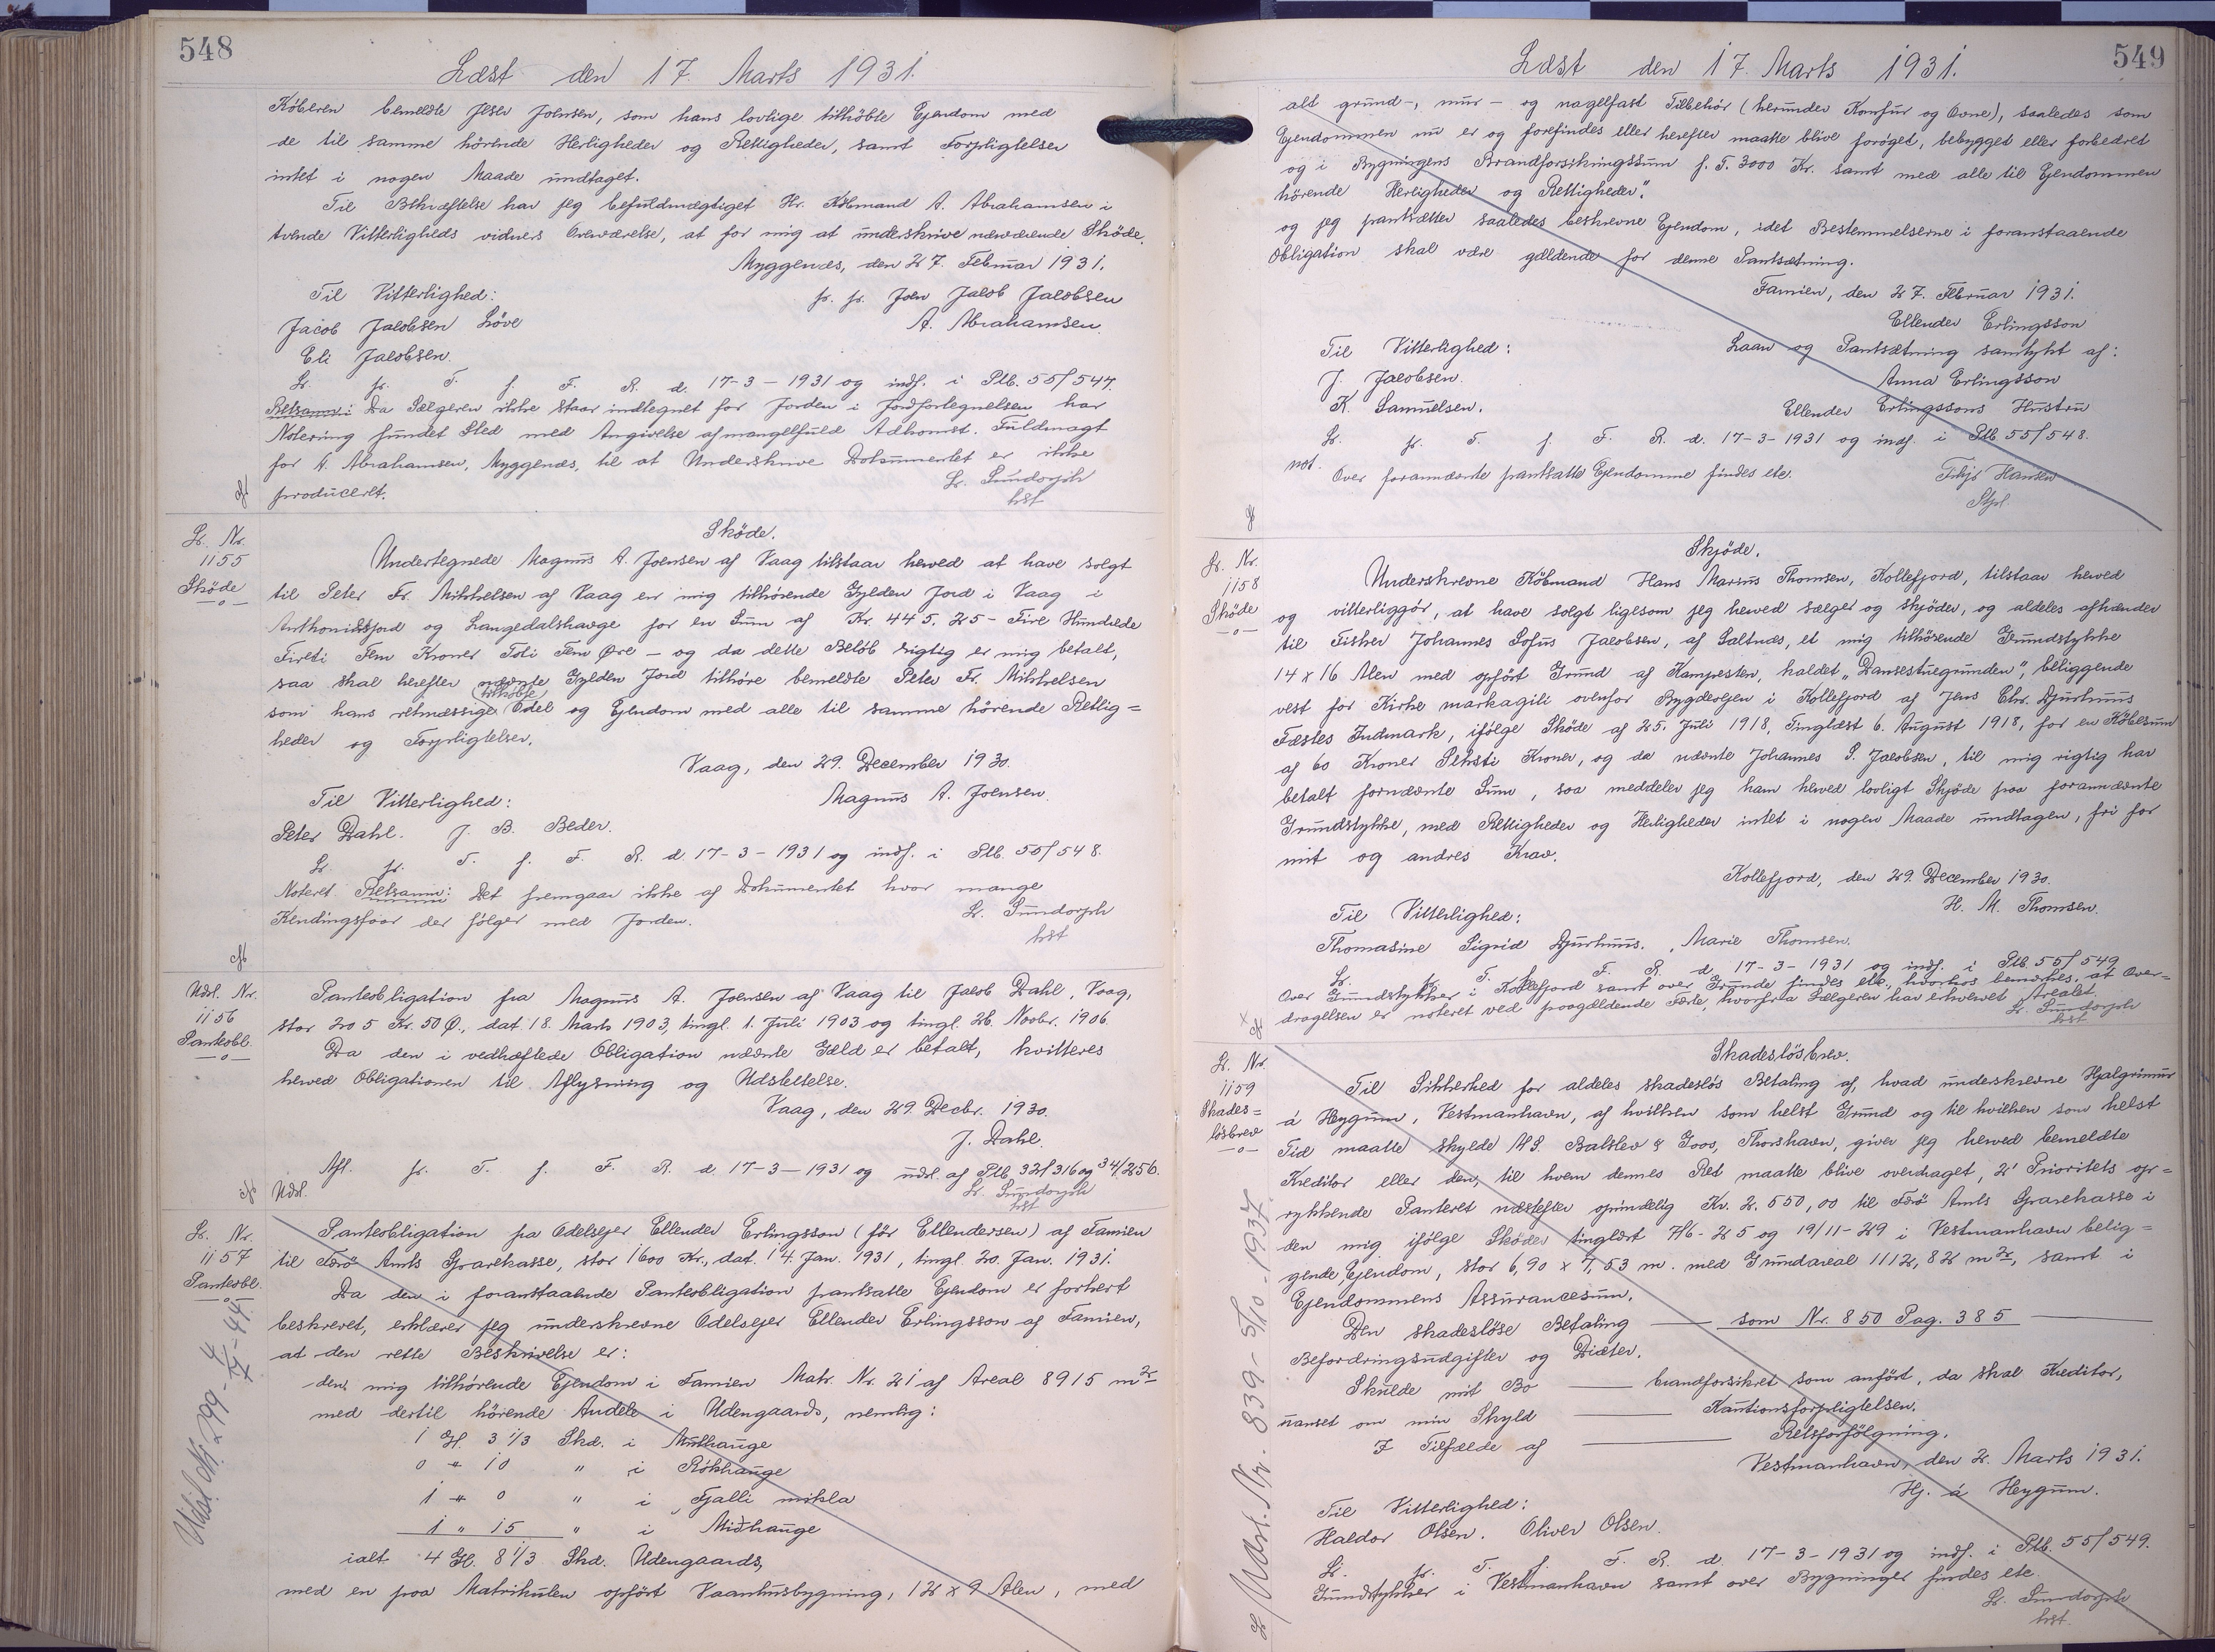 548
Læst den 17. Marts 1931.
Köberen bemeldte Jelser Joensen, som hans lovlige tilköbte Ejendom med
de til samme hörende Herligheder og Rettigheder, samt Forpligtelser
intet i nogen Maade undtaget.
Til Bekræftelse har jeg befuldmægtiget Hr. Köbmand A. Abrahamsen i
tvende Vitterligheds vidners Overværelse, at for mig at underskrive nærværende Sköde.
Myggenæs, den 27. Februar 1931.
Til Vitterlighed: pr. pr. Joen Jacob Jacobsen
Jacob Jacobsen Löve A. Abrahamsen.
Eli Jacobsen.
Lr. pr. T. f. F. R. d. 17-3-1931 og indf. i Ptb. 55/547.
Retsanm: Da Sælgeren ikke staar indtegnet for Jorden i Jordfortegnelsen har
Notering fundet Sted med Angivelse af mangelfuld Adkomst. Fuldmagt
for A. Abrahamsen, Myggenæs, til at Underskrive Dokumentet er ikke
produceret. Lr. Sundorph
hst
Lr. Nr.
1155
Sköde
Sköde.
Undertegnede Magnus A. Joensen af Vaag tilstaar herved at have solgt
til Peter Fr. Mikkelsen af Vaag en mig tilhörende Gylden Jord i Vaag i
Anthonisfjord og Langedalshavge for en Sum af Kr. 445.25 - Fire Hundrede
Fireti Fem Kroner Toti Fem Øre - og da dette Belöb rigtig er mig betalt,
saa skal herefter nævnte Gylden Jord tilhöre bemeldte Peter Fr. Mikkelsen
som hans retmæssige tilköbte Odel og Ejendom med alle til samme hörende Rettig=
heder og Forpligtelser.
Vaag, den 29. December 1930.
Til Vitterlighed: Magnus A. Joensen.
Peter Dahl. J. B. Beder.
Lr. pr. T. f. F. R. d. 17-3-1931 og indf. i Ptb. 55/548.
Noteret Retsanm: Det fremgaar ikke af Dokumentet hvor mange
Kendingsfaar der fölger med Jorden. Lr. Sundorph
hst
Udsl. Nr.
1156
Panteobl.
Panteobligation fra Magnus A. Joensen af Vaag til Jacob Dahl, Vaag,
stor 205 Kr. 50 Ø., dat. 18. Marts 1903, tingl. 1. Juli 1903 og tingl. 26. Novbr. 1906.
Da den i vedhæftede Obligation nævnte Gæld er betalt, kvitteres
herved Obligationen til Aflysning og Udslettelse.
Vaag, den 29. Decbr. 1930.
J. Dahl.
Afl. pr. T. f. F. R. d 17-3-1931 og udsl. af Ptb. 32/316 og 34/256.
Udsl. Lr. Sundorph
hst
Lr. Nr.
1157
Panteobl.
Udsl. Nr. 299 - 4/7 - 44.
Panteobligation fra Odelsejer Ellender Erlingsson (för Ellendersen) af Famien
til Færö Amts Sparekasse, stor 1600 Kr., dat. 14. Jan. 1931, tingl. 20. Jan. 1931.
Da den i foranstaaende Panteobligation pantsatte Ejendom er forkert
beskrevet, erklærer jeg underskrevne Odelsejer Ellender Erlingsson af Famien,
at den rette Beskrivelse er:
den mig tilhörende Ejendom i Famien Matr. Nr. 21 af Areal 8915 m2
med dertil hörende Andele i Udengaards, nemlig:
1 Gl. 3 1/3 Skd. i Mulhauge
0 " 10 " i Rökhauge
1 " 0 " i Fjalli mikla
1 " 15 " i Miðhauge
ialt 4 Gl. 8 1/3 Skd. Udengaards,
med en paa Matrikulen opfört Vaanhusbygning, 12 x 9 Alen, med
549
Læst den 17. Marts 1931.
alt grund-, mur- og nagelfast Tilbehör (herunder Komfur og Ovne), saaledes som
Ejendommen nu er og forefindes eller herefter maatte blive foröget, bebygget eller forbedret
og i Bygningens Brandforsikringssum p. T. 3000 Kr. samt med alle til Ejendommen
hörende Herligheder og Rettigheder".
og jeg pantsætter saaledes beskrevne Ejendom, idet Bestemmelserne i foranstaaende
Obligation skal være gældende for denne Pantsætning.
Famien, den 27. Februar 1931.
Ellender Erlingsson
Til Vitterlighed: Laan og Pantsætning samtykt af:
J. Jacobsen. Anna Erlingsson
K. Samuelsen. Ellender Erlingssons Hustru
Lr. pr. T. f. F. R. d. 17-3-1931 og indf. i Ptb 55/548.
not. Over forannævnte pantsatte Ejendomme findes etc. Thjs Hansen
Stpl.
Lr. Nr.
1158
Sköde
Skjöde.
Underskrevne Köbmand Hans Marius Thomsen, Kollefjord, tilstaar herved
og vitterliggör, at have solgt ligesom jeg herved sælger og skjöder, og aldeles afhænder
til Fisker Johannes Sofus Jacobsen, af Saltnæs, et mig tilhörende Grundstykke
14 x 16 Alen med opfört Grund af Kampesten, kaldet "Dansestuegrunden", beliggende
vest for Kirke markagili ovenfor Bygdevejen i Kollefjord af Jens Chr. Djurhuus
Fæstes Indmark, ifölge Sköde af 25. Juli 1918, Tinglæst 6. August 1918, for en Köbesum
af 60 Kroner Seksti Kroner, og da nævnte Johannes S. Jacobsen, til mig rigtig har
betalt fornævnte Sum, saa meddeler jeg ham herved lovligt Skjöde paa forannævnte
Grundstykke, med Rettigheder og Herligheder intet i nogen Maade undtagen, fri for
mit og andres Krav.
Kollefjord, den 29. December 1930.
Til Vitterlighed: H. M. Thomsen.
Thomasine Sigrid Djurhuus. Marie Thomsen.
Lr. pr. T. f. F. R. d. 17-3-1931 og indf. i Ptb. 55/549
Over Grundstykker i Kollefjord samt over Grunde findes etc., hvorhos bemærkes, at Over=
dragelsen er noteret ved paagældende Fæste, hvorfra Sælgeren har erhvervet Arealet.
Lr. Sundorph
hst
Lr. Nr.
1159
Skades=
lösbrev
Udsl. Nr. 839 - 5/10 - 1937.
Skadeslösbrev.
Til Sikkerhed for aldeles skadeslös Betaling af, hvad underskrevne Hjalgrimur
á Heygum, Vestmanhavn, af hvilken som helst Grund og til hvilken som helst
Tid maatte skylde A/S. Balslev & Goos, Thorshavn, giver jeg herved bemeldte
Kreditor eller den, til hvem dennes Ret maatte blive overdraget, 2' Prioritets op=
rykkende Panteret næstefter oprindelig Kr. 2.550,00 til Færö Amts Sparekasse i
den mig ifölge Skøder tinglæst 7/6-25 og 19/11-29 i Vestmanhavn belig=
gende Ejendom, stor 6,90 x 7,53 m. med Grundareal 1112,82 m2, samt i
Ejendommens Assurancesum.
Den skadeslöse Betaling — som Nr. 850 Pag. 385 —
Befordringsudgifter og Diæter.
Skulde mit Bo — brandforsikret som anfört, da skal Kreditor,
uanset om min Skyld — Kautionsforpligtelsen.
I Tilfælde af — Retsforfölgning.
Vestmanhavn, den 2. Marts 1931.
Hj. á Heygum.
Til Vitterlighed:
Haldor Olsen. Oliver Olsen.
Lr. pr. T. f. F. R. d. 17-3-1931 og indf. i Ptb. 55/549.
Grundstykker i Vestmanhavn samt over Bygninger findes etc.
Lr. Sundorph
hst.